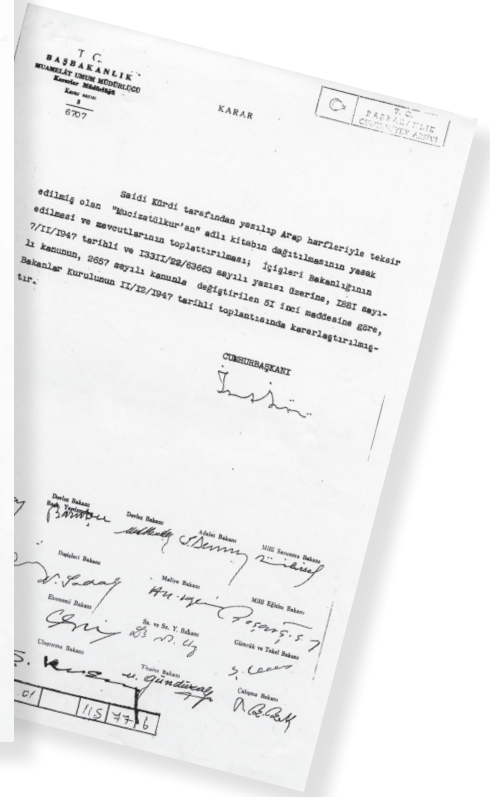 T C.
BAŞBAKANLIK
MUAMELÂT UMUM MÜDÜRLÜĞÜ
Kararlar Müdürlüğü
Karar sayısı
3
6707
KARAR
T. C.
BAŞBAKANLIK
CUMHURİYET ARŞİVİ
Saidi Kürdi tarafından yazılıp Arap harfleriyle teksir
edilmiş olan "Mucizatülkur'an" adlı kitabın dağıtılmasının yasak
edilmesi ve mevcutlarının toplattırılması; İçişleri Bakanlığının
7/II/1947 tarihli ve I33II/22/63663 sayılı yazısı üzerine, I88I sayı-
lı kanunun, 2657 sayılı kanunla değiştirilen 5I inci maddesine göre,
Bakanlar Kurulunun II/I2/1947 tarihli toplantısında kararlaştırılmış-
tır.
CUMHURBAŞKANI
Devlet Bakanı
Devlet Bakanı
Adalet Bakanı
Millî Savunma Bakanı
Dışişleri Bakanı
Maliye Bakanı
Millî Eğitim Bakanı
Ekonomi Bakanı
Sa. ve So. Y. Bakanı
Gümrük ve Tekel Bakanı
Ulaştırma Bakanı
Ticaret Bakanı
Çalışma Bakanı
01 115 77 6